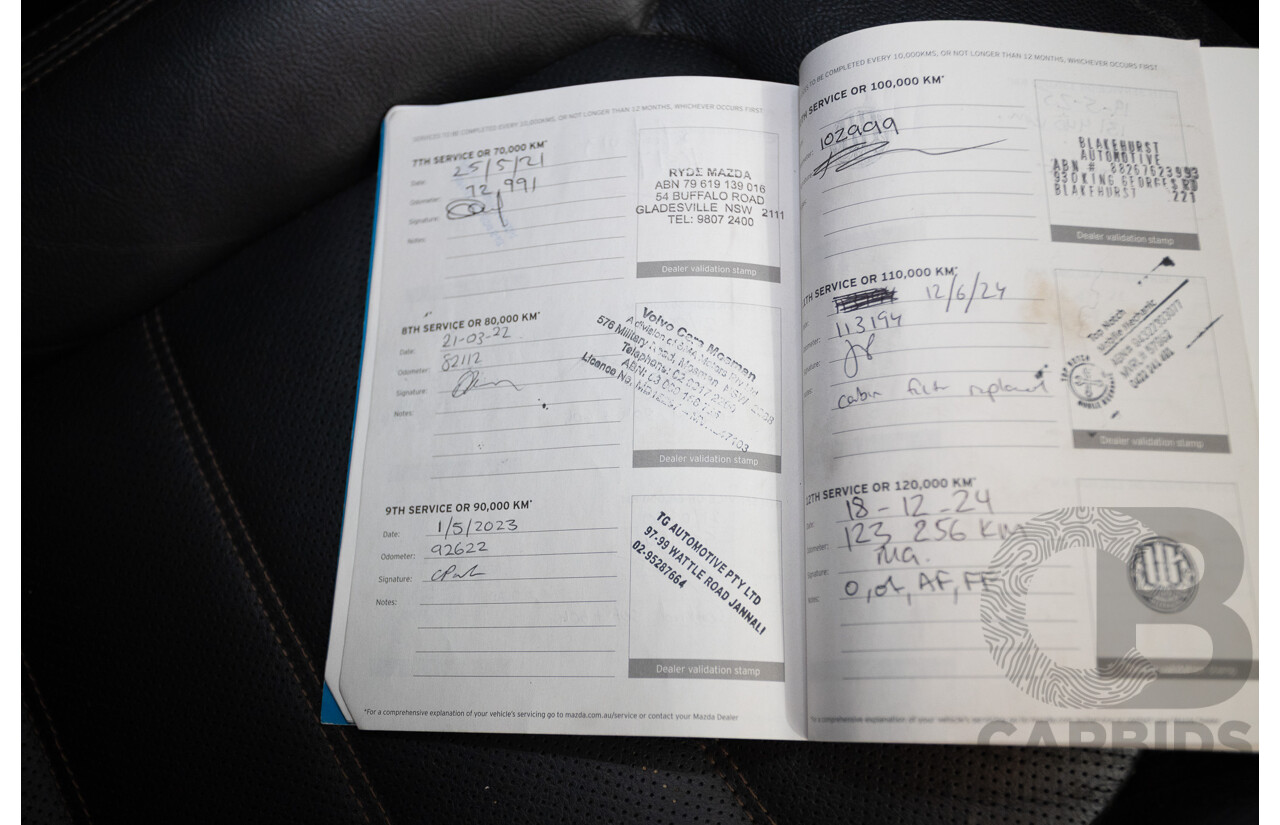 SERVICES TO BE COMPLETED EVERY 10,000KMS, OR NOT LONGER THAN 12 MONTHS, WHICHEVER OCCURS FIRST
7TH SERVICE OR 70,000 KM*
Date: 25/5/21
Odometer: 72,991
Signature:
Notes:
RYDE MAZDA
ABN 79 619 139 016
54 BUFFALO ROAD
GLADESVILLE NSW 2111
TEL: 9807 2400
Dealer validation stamp
8TH SERVICE OR 80,000 KM*
Date: 21-03-22
Odometer: 82112
Signature:
Notes:
Volvo Cars Mosman
A division of
576 Military Road, Mosman, NSW 2088
Telephone: 02
ABN: 03 000
Licence No.
Dealer validation stamp
9TH SERVICE OR 90,000 KM*
Date: 1/5/2023
Odometer: 92622
Signature:
Notes:
TG AUTOMOTIVE PTY LTD
97-99 WATTLE ROAD JANNALI
02-95287664
Dealer validation stamp
*For a comprehensive explanation of your vehicle's servicing go to mazda.com.au/service or contact your Mazda Dealer
TO BE COMPLETED EVERY 10,000KMS, OR NOT LONGER THAN 12 MONTHS, WHICHEVER OCCURS FIRST
SERVICE OR 100,000 KM*
102999
BLAKEHURST
AUTOMOTIVE
ABN # 88267623993
KING GEORGES RD
BLAKEHURST 221
Dealer validation stamp
SERVICE OR 110,000 KM*
12/6/24
113194
cabin filter replaced
Top Notch
Mobile Mechanic
TOP NOTCH
MOBILE MECHANIC
Dealer validation stamp
12TH SERVICE OR 120,000 KM*
18-12-24
123 256 Km
O, of, AF, FF
CB
CARBIDS